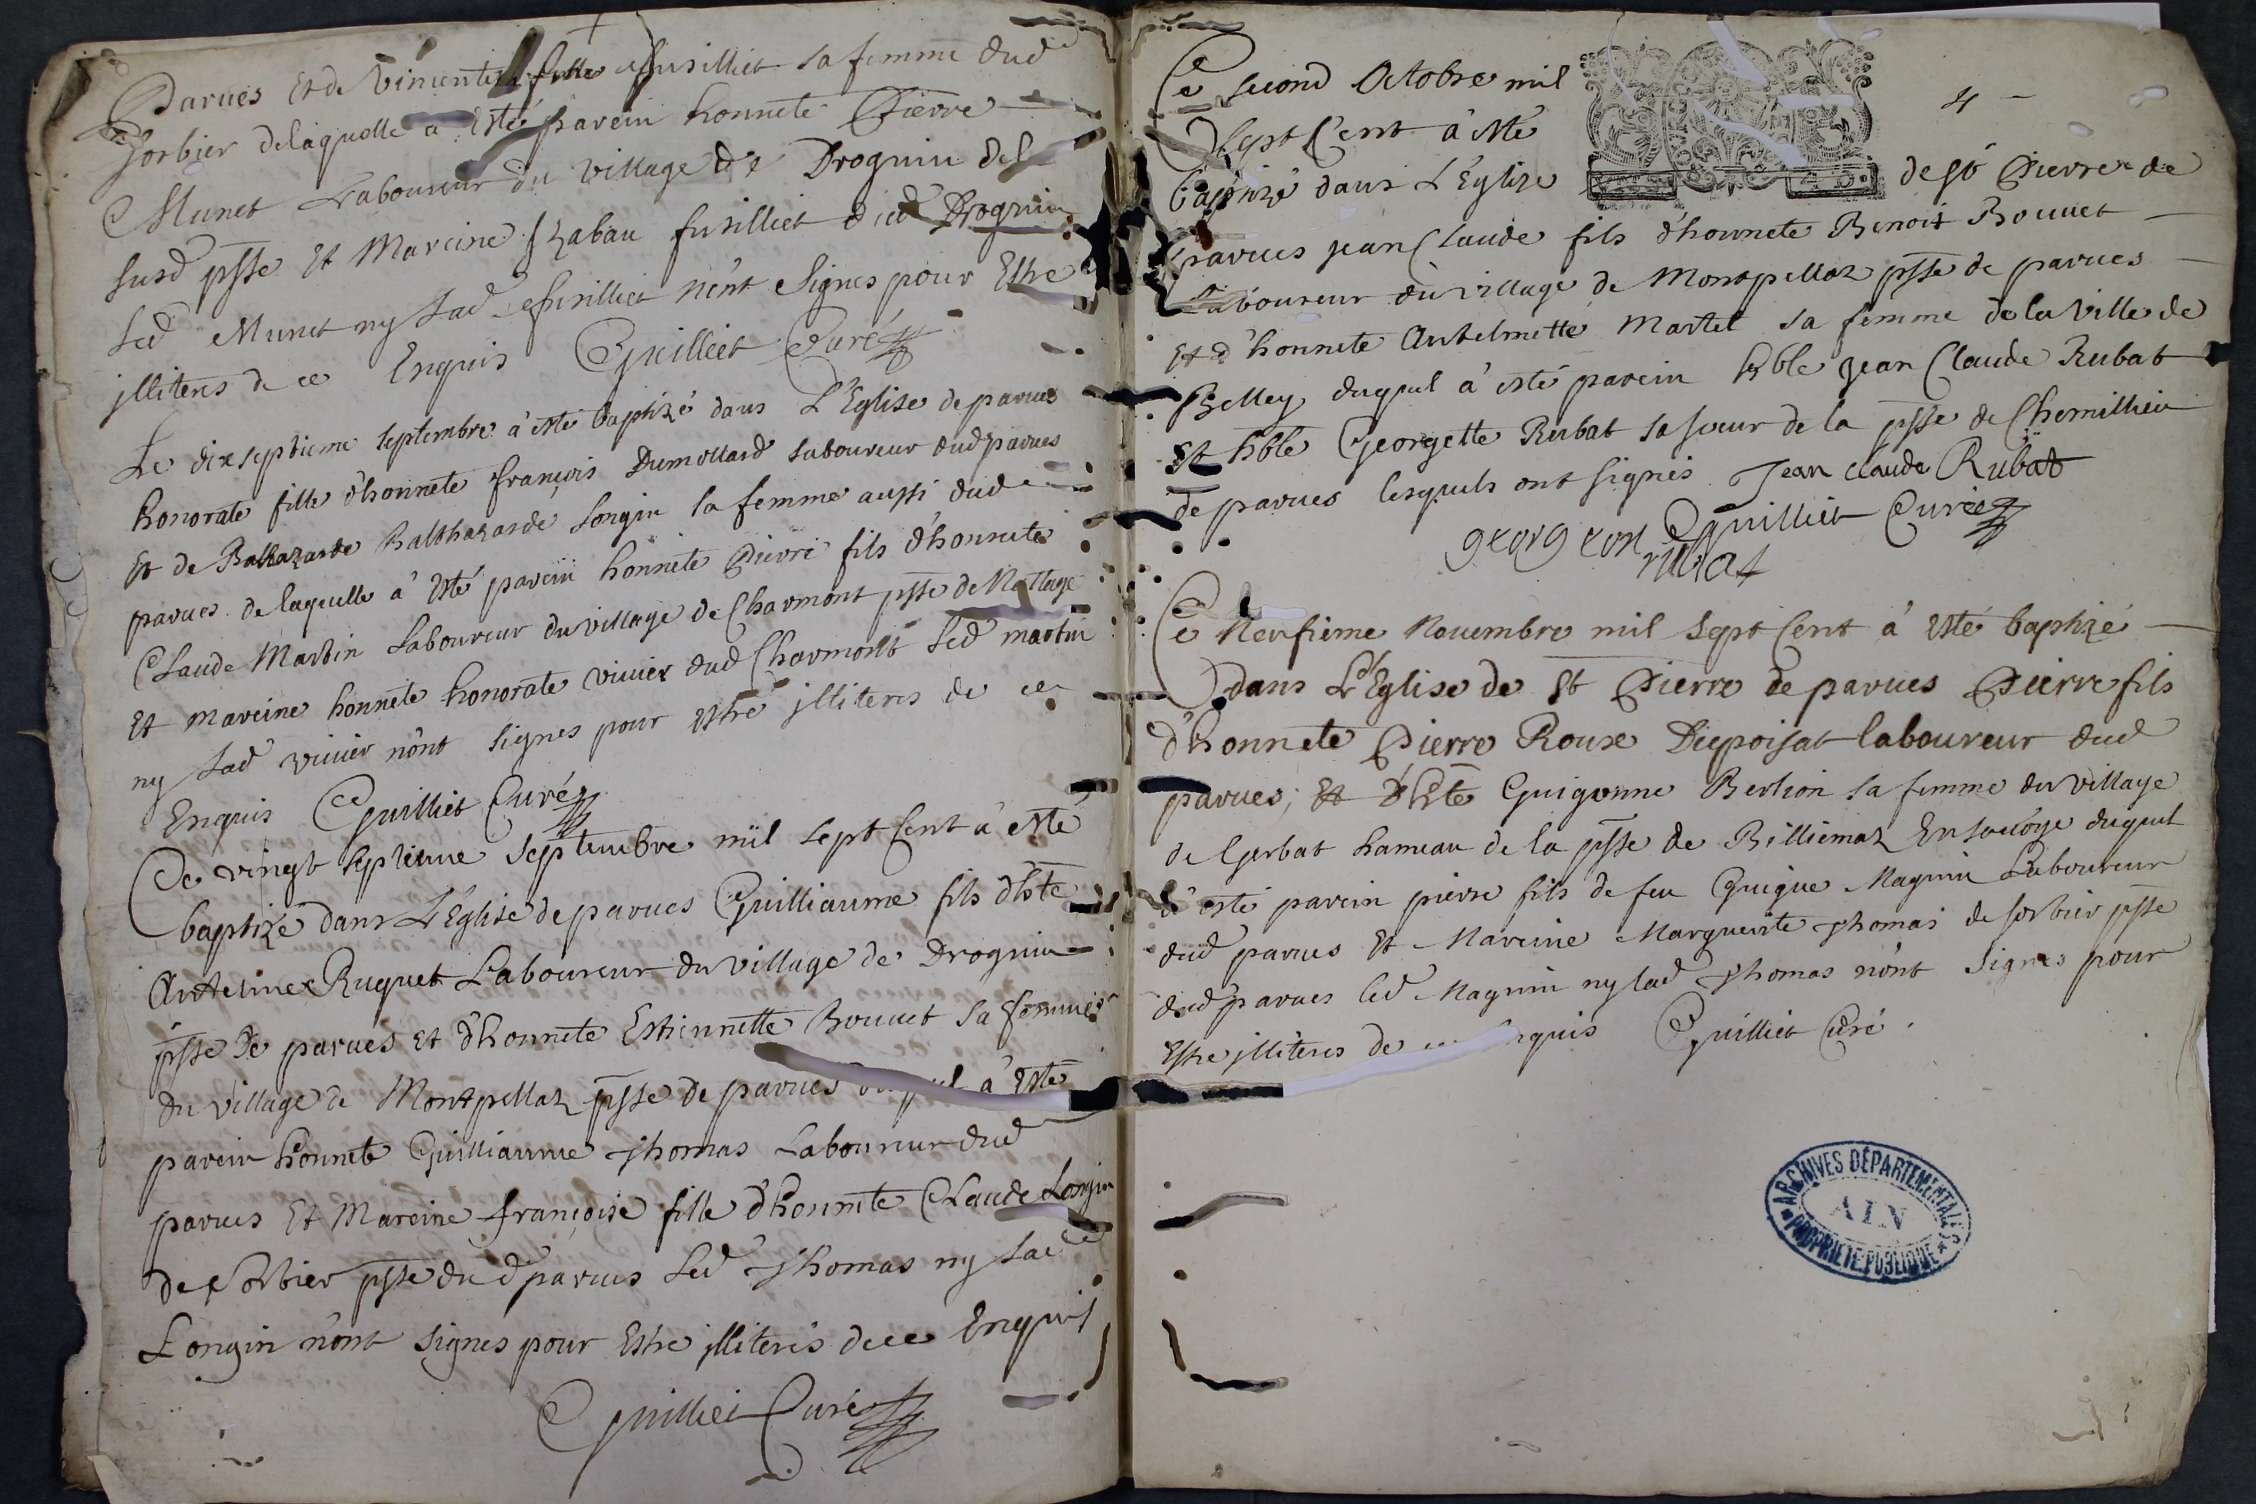 Parues Et de Vincente fusilliet sa femme dud
sorbier delaquelle a Esté parein honnete Pierre
Munet Laboureur du village de Drognin de la
susd psse Et Mareine Izabau fusilliet dud Drognin
Led Munet ny Lad fusilliet n'ont Signes pour Estre
jlliteres de ce Enquis Guilliet Curé
Le dixseptieme septembre à esté baptizé dans L'Eglise de parues
honorate fille d'honnete françois Dumollard laboureur dud parues
Et de Baltazarde Balthazarde Longin sa femme aussi dud
parues de laquelle à Esté parein honnete Pierre fils d'honnete
Claude Martin Laboureur du village de Charmont psse de Nattage
Et mareine honnete honorate vivier dud Charmont Led martin
ny Lad vivier n'ont signes pour estre jlliteres de ce
Enquis Guilliet Curé
Ce vingt septieme Septembre mil sept Cent à esté
baptizé dans L'Eglise de parues Guilliaume fils d'hte
Antelme Ruguet Laboureur du village de Drognin
psse de parues Et d'honnete Estiennette Bouuet sa femme
du village de Montpellaz psse de parues duquel à Esté
parein honnete Guilliaume Thomas Laboureur dud
parues Et Mareine françoise fille d'honnete Claude Longin
de Sorbier psse dud parues Led Thomas ny Lad
Longin n'ont signes pour Estre jlliterés de ce Enquis
Guilliet Curé
4
Ce second Octobre mil
Sept Cent à esté
baptizé dans L'Eglize de St Pierre de
parues jean Claude fils d'honnete Benoit Bouuet
Laboureur du village de Montpellaz psse de parues
Et d'honnete Antelmette Martel sa femme de la Ville de
Belley duquel à esté parein hble jean Claude Rubat
Et hble Georgette Rubat sa soeur de la psse de Chemillieu
de parues lesquels ont signés Jean claude Rubat
Guilliet Curé
rubat
Ce Neufieme Nouembre mil sept Cent à Esté baptizé
dans L'Eglise de St Pierre de parues Pierre fils
d'honnete Pierre Roux Diepoisat laboureur dud
parues, Et D'hte Guigonne Berlion sa femme du village
de Gerbat hameau de la psse de Billiemaz En sauoye duquel
à esté parein pierre fils de feu Guigue Magnin Laboureur
dud parues Et Mareine Marguerite Thomas de sorbier psse
dud parues led Magnin ny lad Thomas n'ont Signes pour
Estre jlliteres de Guilliet Curé
ARCHIVES DÉPARTEMENTALES
AIN
PROPRIÉTÉ PUBLIQUE